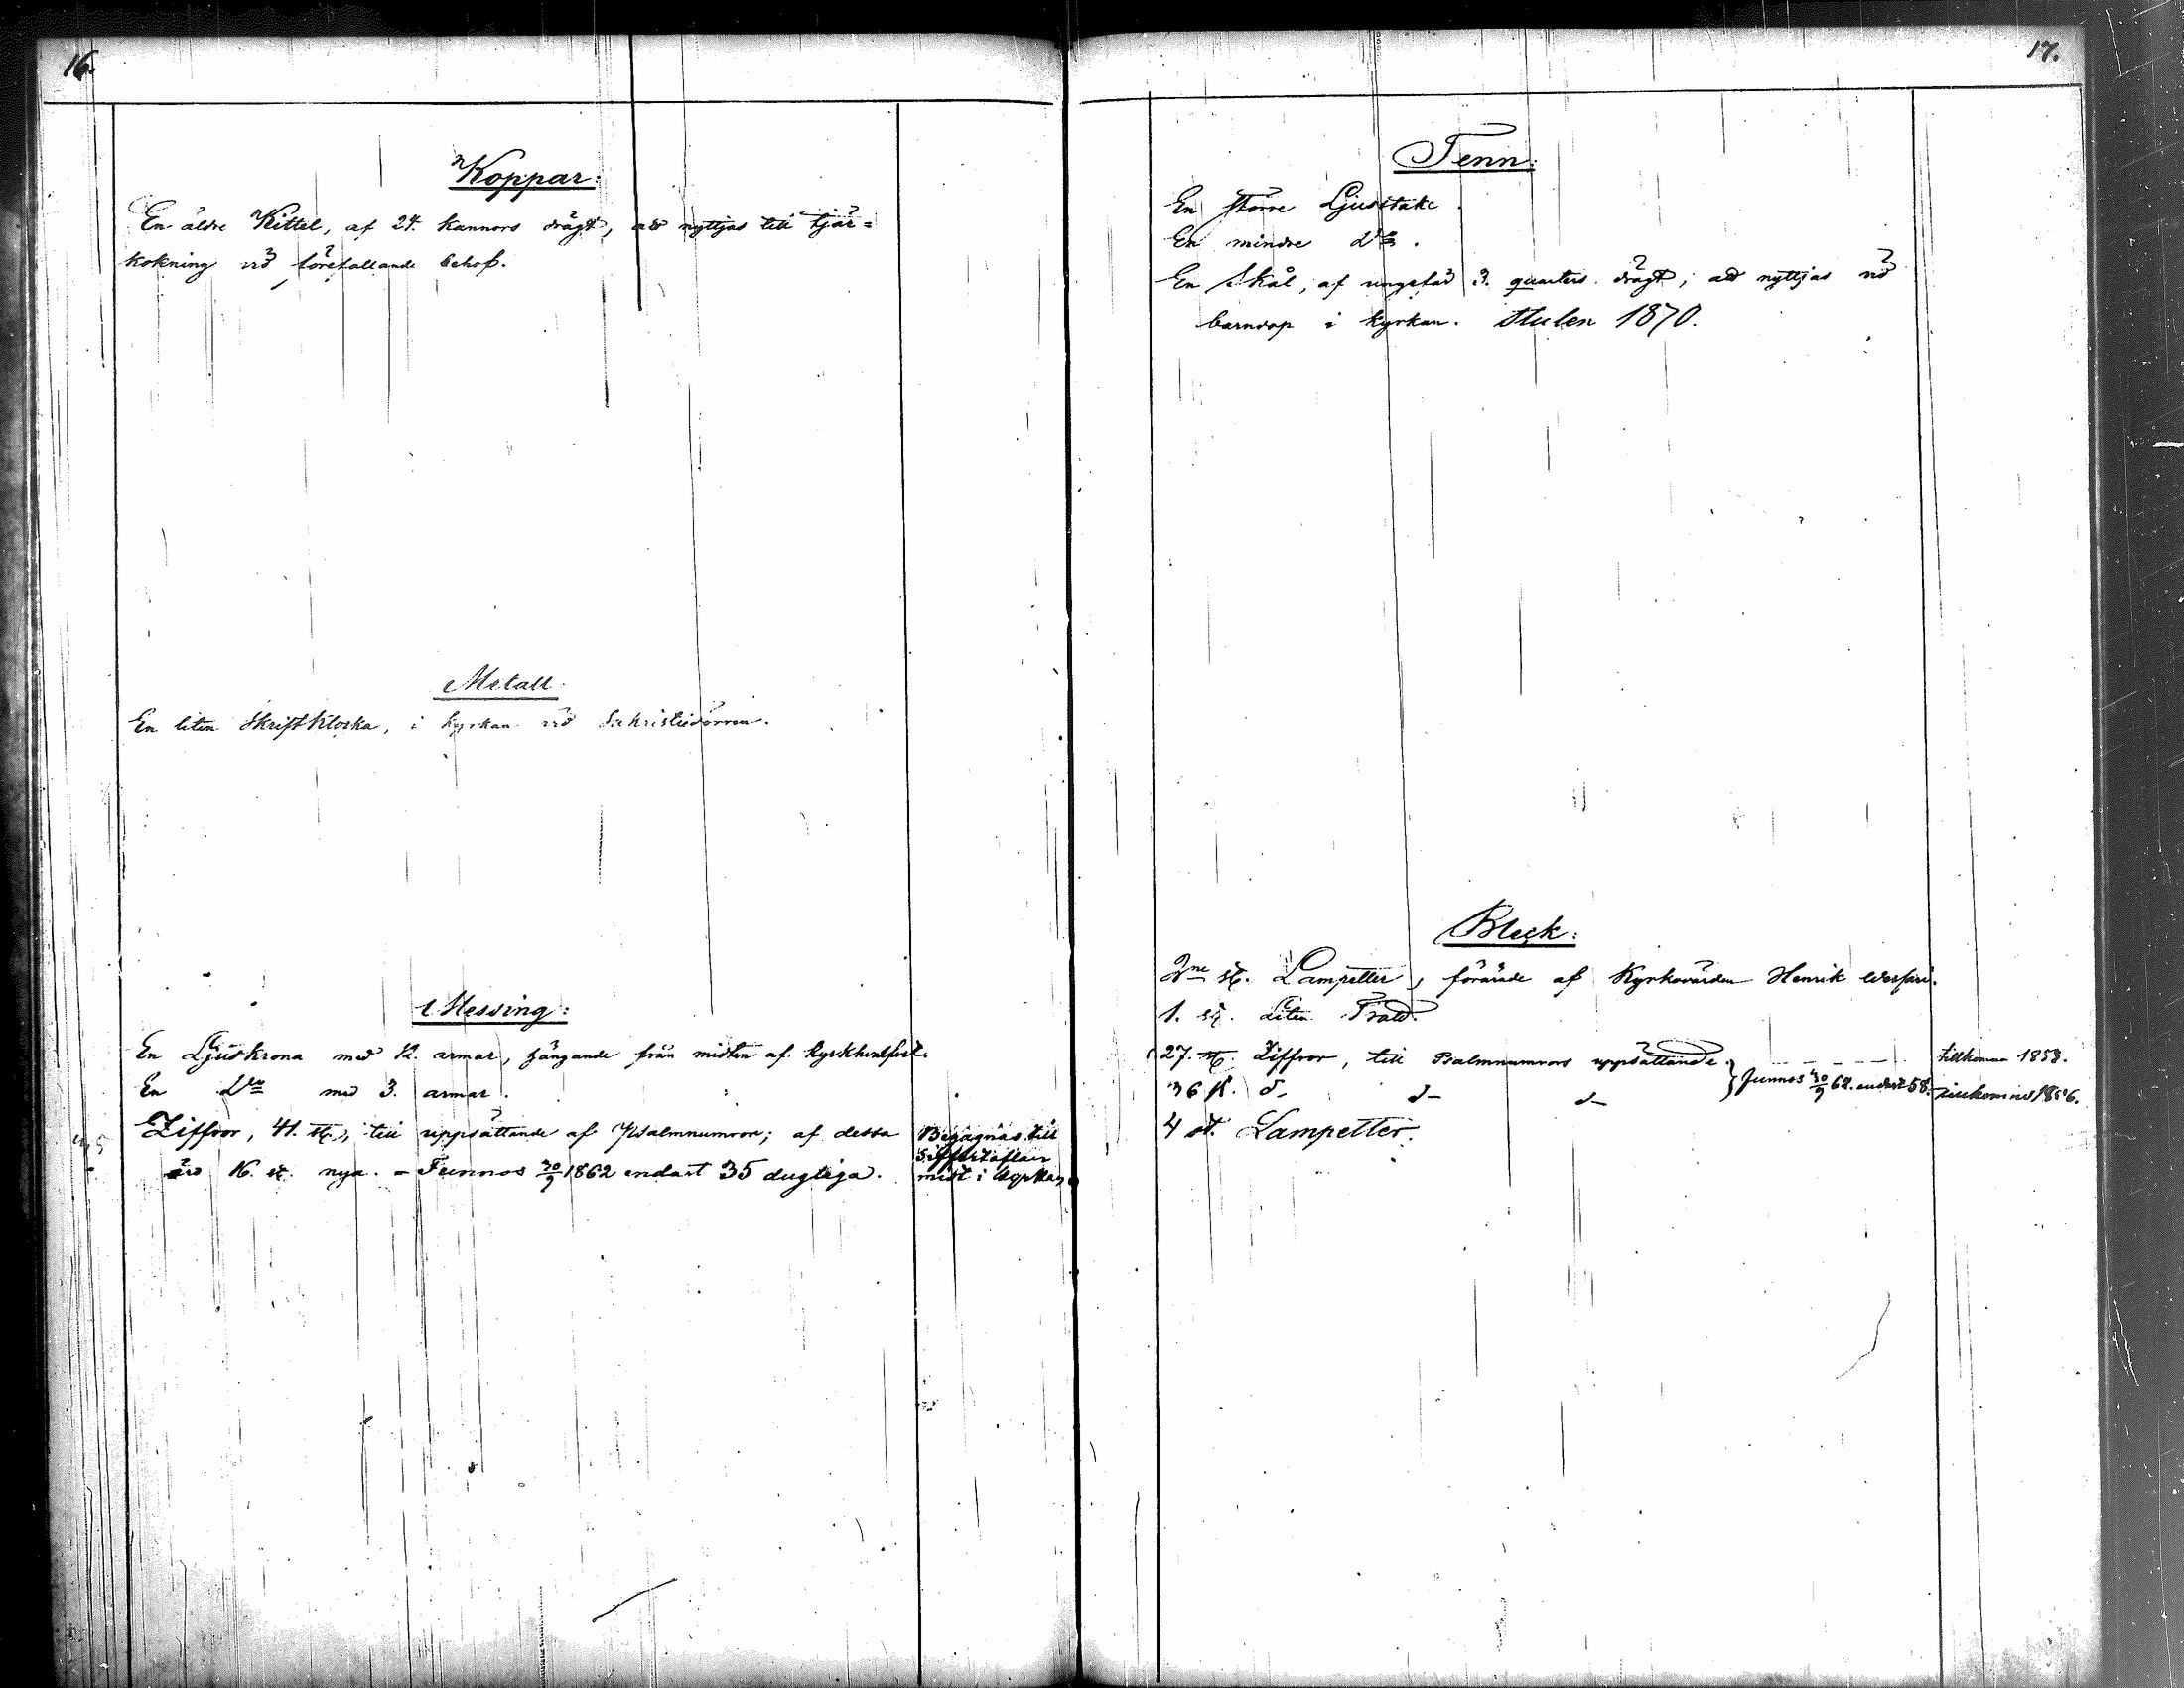 16.
Koppar:
En äldre Kittel, af 24. kannors drägt, att nyttjas till tjär=
kokning vid förefallande behof.
Metall.
En liten Skriftklocka, i kyrkan vid Sakristiedörren.
Messing:
En Ljuskrona med 12. armar, hängande från midten af kyrkhvalfvet.
En Dto med 3. armar.
Ziffror, 41. st., till uppsättande af Psalmnumror; af dessa
äro 16. st. nya. - Funnos 30/9 1862 endast 35 dugliga.
Begagnas till
siffertaflan
midt i kyrkan
17.
Tenn:
En större Ljusstake.
En mindre Dto.
En Skål, af ungefär 3. quarters drägt; att nyttjas vid
barndop i kyrkan. Stulen 1870.
Bleck:
2ne st. Lampetter, förärade af Kyrkovärden Henrik
1. st. liten Tratt.
27. st. Ziffror, till Psalmnumrors uppsättande. tillkomna 1853.
36 st. d- d- d- } Funnos 30/9 62. endast 58. tillkomna 1856.
4 st. Lampetter.